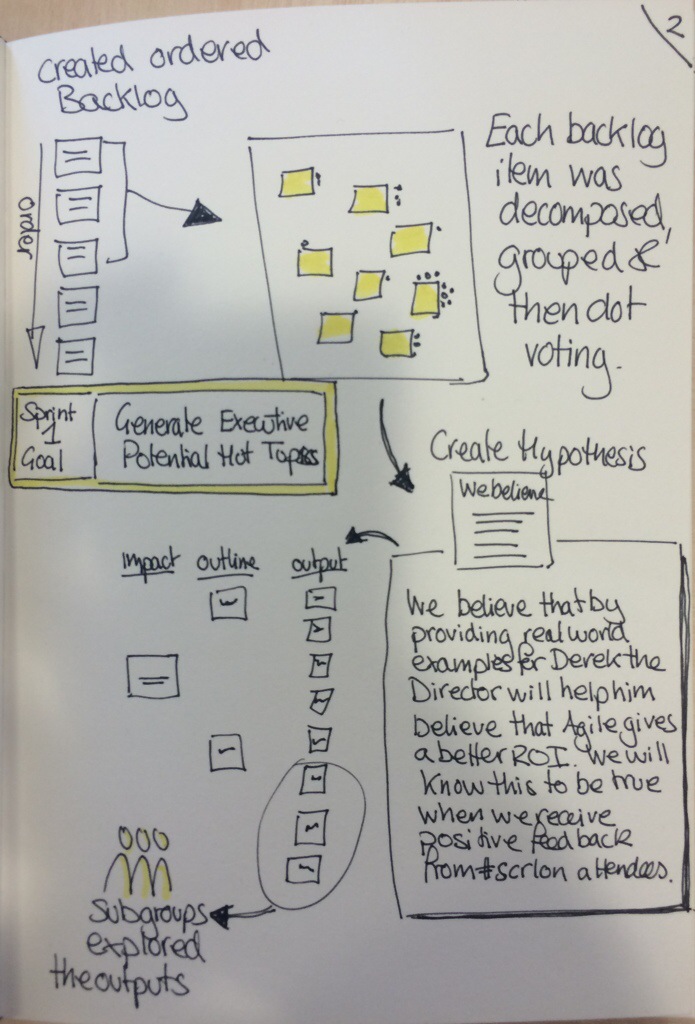 2
Created ordered
Backlog
order
Each backlog
item was
decomposed,
grouped &
then dot
voting.
Sprint
1
Goal
Generate Executive
Potential Hot Topics
Create Hypothesis
We believe
impact
outline
output
We believe that by
providing real world
examples for Derek the
Director will help him
believe that Agile gives
a better ROI. We will
know this to be true
when we receive
positive feedback
from #scrlon attendees.
Subgroups
explored
the outputs